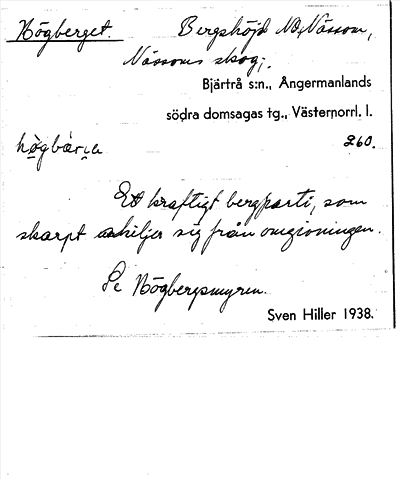 Högberget. Bergshöjd NO Nässom,
Nässoms skog;.
Bjärtrå s:n., Ångermanlands
södra domsagas tg., Västernorrl. l.
högbärje 260.
Ett kraftigt bergparti, som
skarpt avskiljer sig från omgivningen.
Se Högbergsmyren.
Sven Hiller 1938.